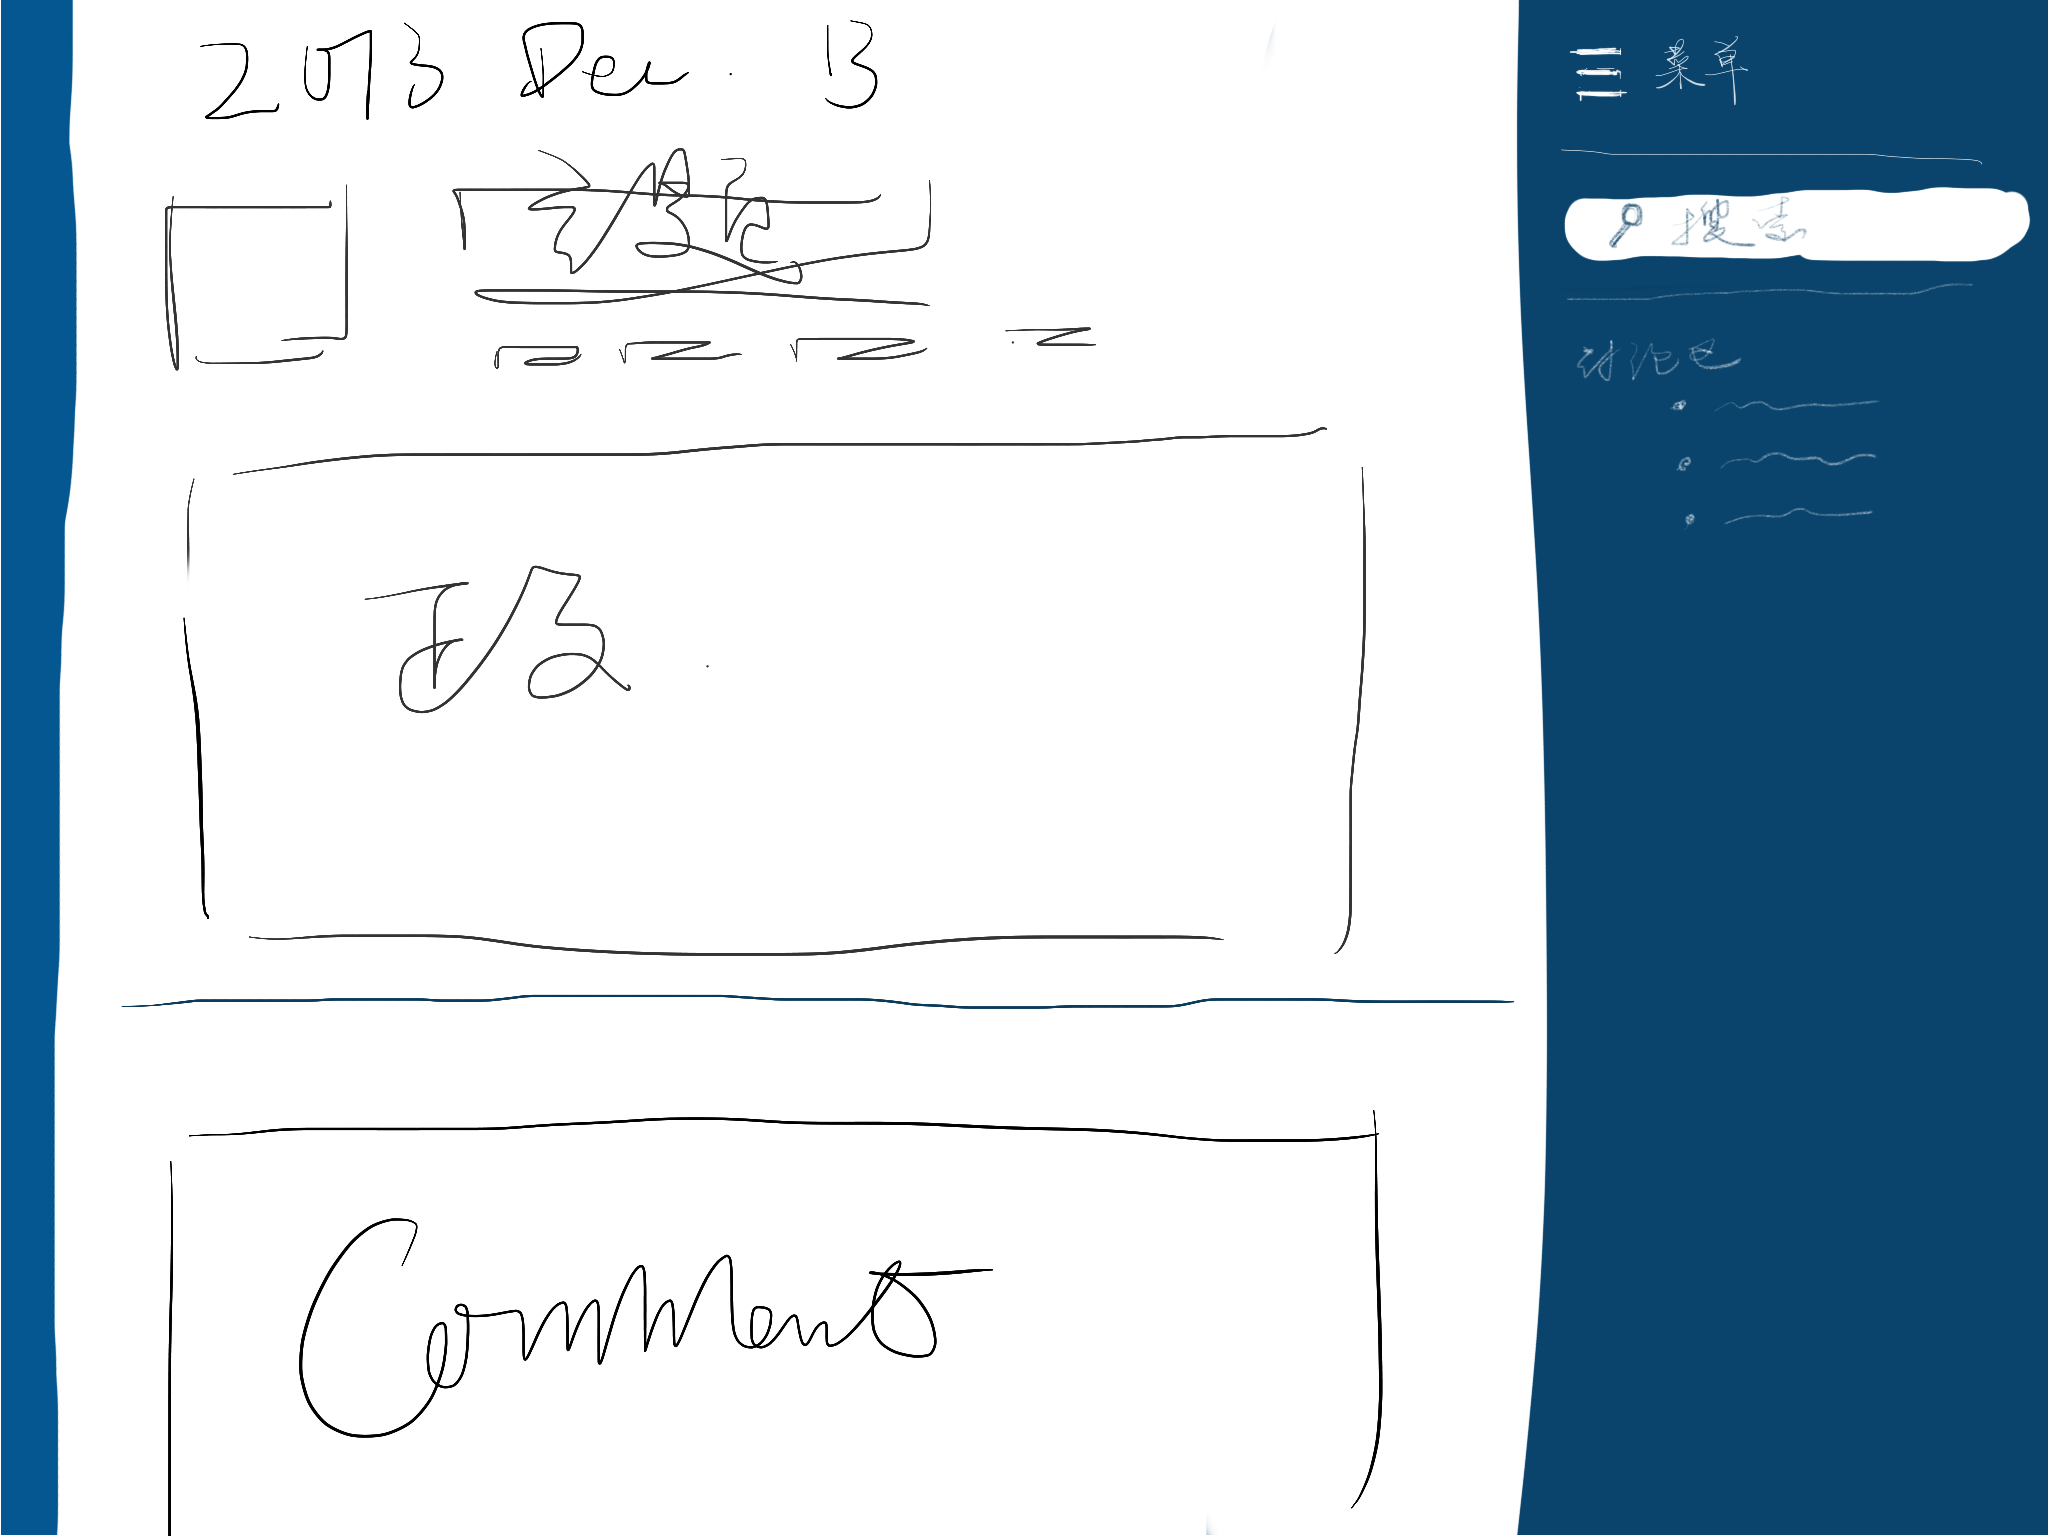 2013 Dec. 13
Comment
菜单
搜索
讨论区